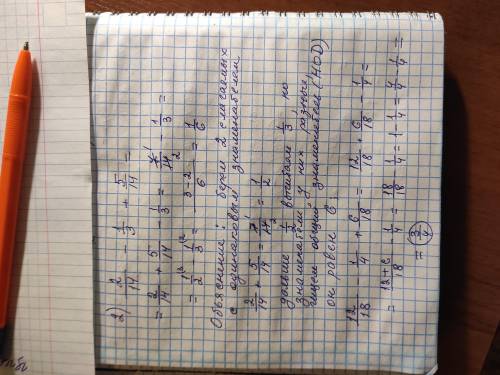 2) 2/14 - 1/3 + 5/14 =
= 2/14 + 5/14 - 1/3 = 7¹/14₂ - 1/3 =
= 1/2 - 1/3 = 3-2/6 = 1/6
Объяснение: берем 2 слагаемых
с одинаковым знаменателем
2/14 + 5/14 = 7¹/14₂ = 1/2
дальше 1/2 вычитаем 1/3, но
знаменатели у них разные,
ищем общий знаменатель (НОD)
он равен 6,
12/18 - 1/4 + 6/18 = 12/18 + 6/18 - 1/4 =
= 12+6/18 - 1/4 = 18/18 - 1/4 = 1 - 1/4 = 4/4 - 1/4 =
= 3/4